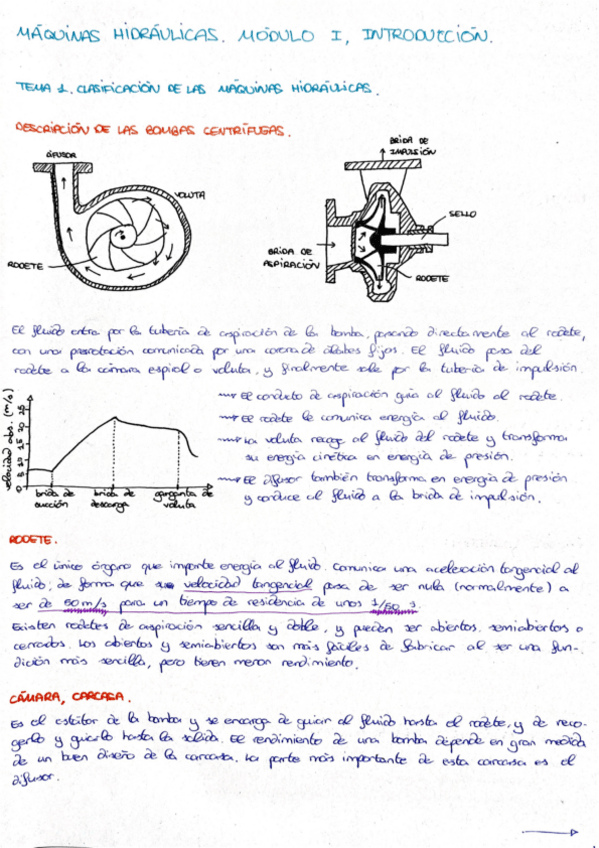 MÁQUINAS HIDRÁULICAS. MÓDULO I, INTRODUCCIÓN.
TEMA 1. CLASIFICACIÓN DE LAS MÁQUINAS HIDRÁULICAS.
DESCRIPCIÓN DE LAS BOMBAS CENTRÍFUGAS.
DIFUSOR
VOLUTA
RODETE
BRIDA DE
IMPULSIÓN
SELLO
BRIDA DE
ASPIRACIÓN
RODETE
El fluido entra por la tubería de aspiración de la bomba, pasando directamente al rodete,
con una prerrotación comunicada por una corona de álabes fijos. El fluido pasa del
rodete a la cámara espiral o voluta, y finalmente sale por la tubería de impulsión.
velocidad abs. (m/s)
25
20
15
10
5
0
brida de
succión
brida de
descarga
garganta de
voluta
El conducto de aspiración guía al fluido al rodete.
El rodete le comunica energía al fluido.
La voluta recoge al fluido del rodete y transforma
su energía cinética en energía de presión.
El difusor también transforma en energía de presión
y conduce el fluido a la brida de impulsión.
RODETE.
Es el único órgano que imparte energía al fluido. Comunica una aceleración tangencial al
fluido; de forma que su velocidad tangencial pasa de ser nula (normalmente) a
ser de 50 m/s para un tiempo de residencia de unos 1/50 s.
Existen rodetes de aspiración sencilla y doble, y pueden ser abiertos, semiabiertos o
cerrados. Los abiertos y semiabiertos son más fáciles de fabricar al ser una fun-
dición más sencilla, pero tienen menor rendimiento.
CÁMARA, CARCASA.
Es el estátor de la bomba y se encarga de guiar al fluido hasta el rodete, y de reco-
gerlo y guiarlo hasta la salida. El rendimiento de una bomba depende en gran medida
de un buen diseño de la carcasa. La parte más importante de esta carcasa es el
difusor.